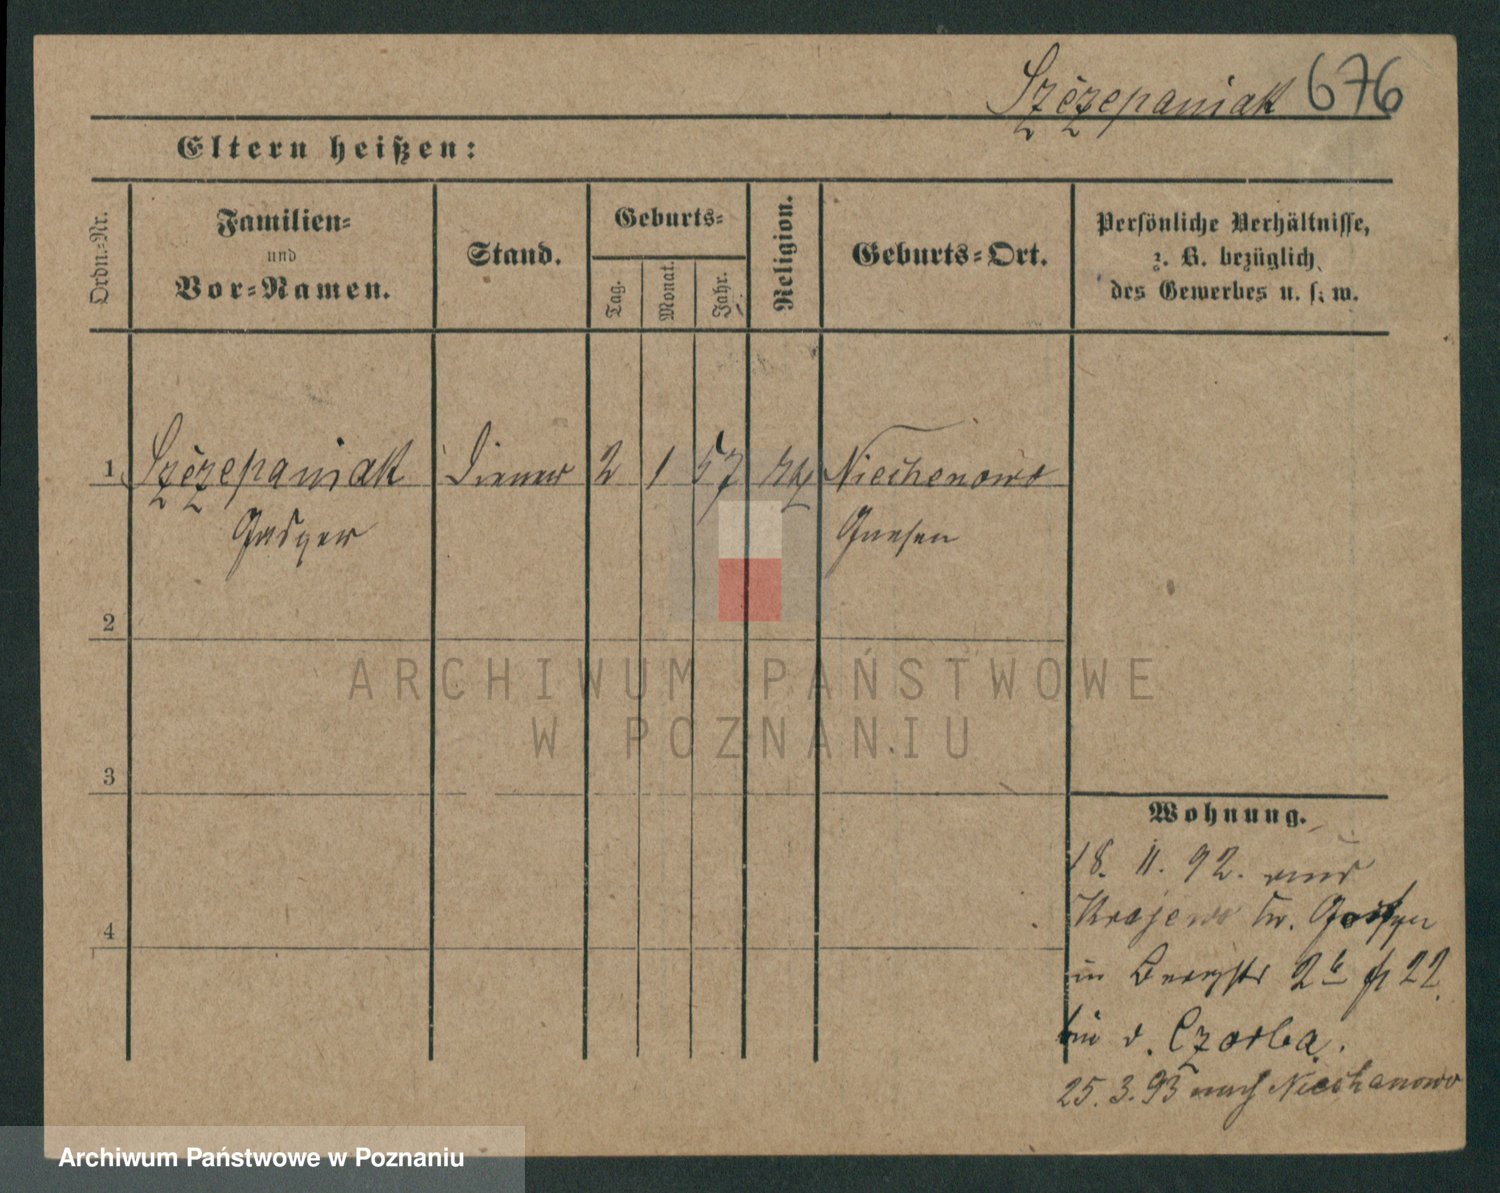 Szczepaniak 676
Eltern heißen:
Ordn.-Nr.
Familien-
und
Vor-Namen.
Stand.
Geburts-
Tag.
Monat.
Jahr.
Religion.
Geburts-Ort.
Persönliche Verhältnisse,
z. B. bezüglich
des Gewerbes u. s. w.
1 Szczepaniak Diener 2 1 57 kath Niechanowo
Gasper Gnesen
2
3
4
Wohnung.
18. 11. 92. aus
Krajewo Kr.
in Bergstr 2b
bei v. Czarba.
25. 3. 93 nach Niechanowo
ARCHIWUM PAŃSTWOWE
W POZNANIU
Archiwum Państwowe w Poznaniu